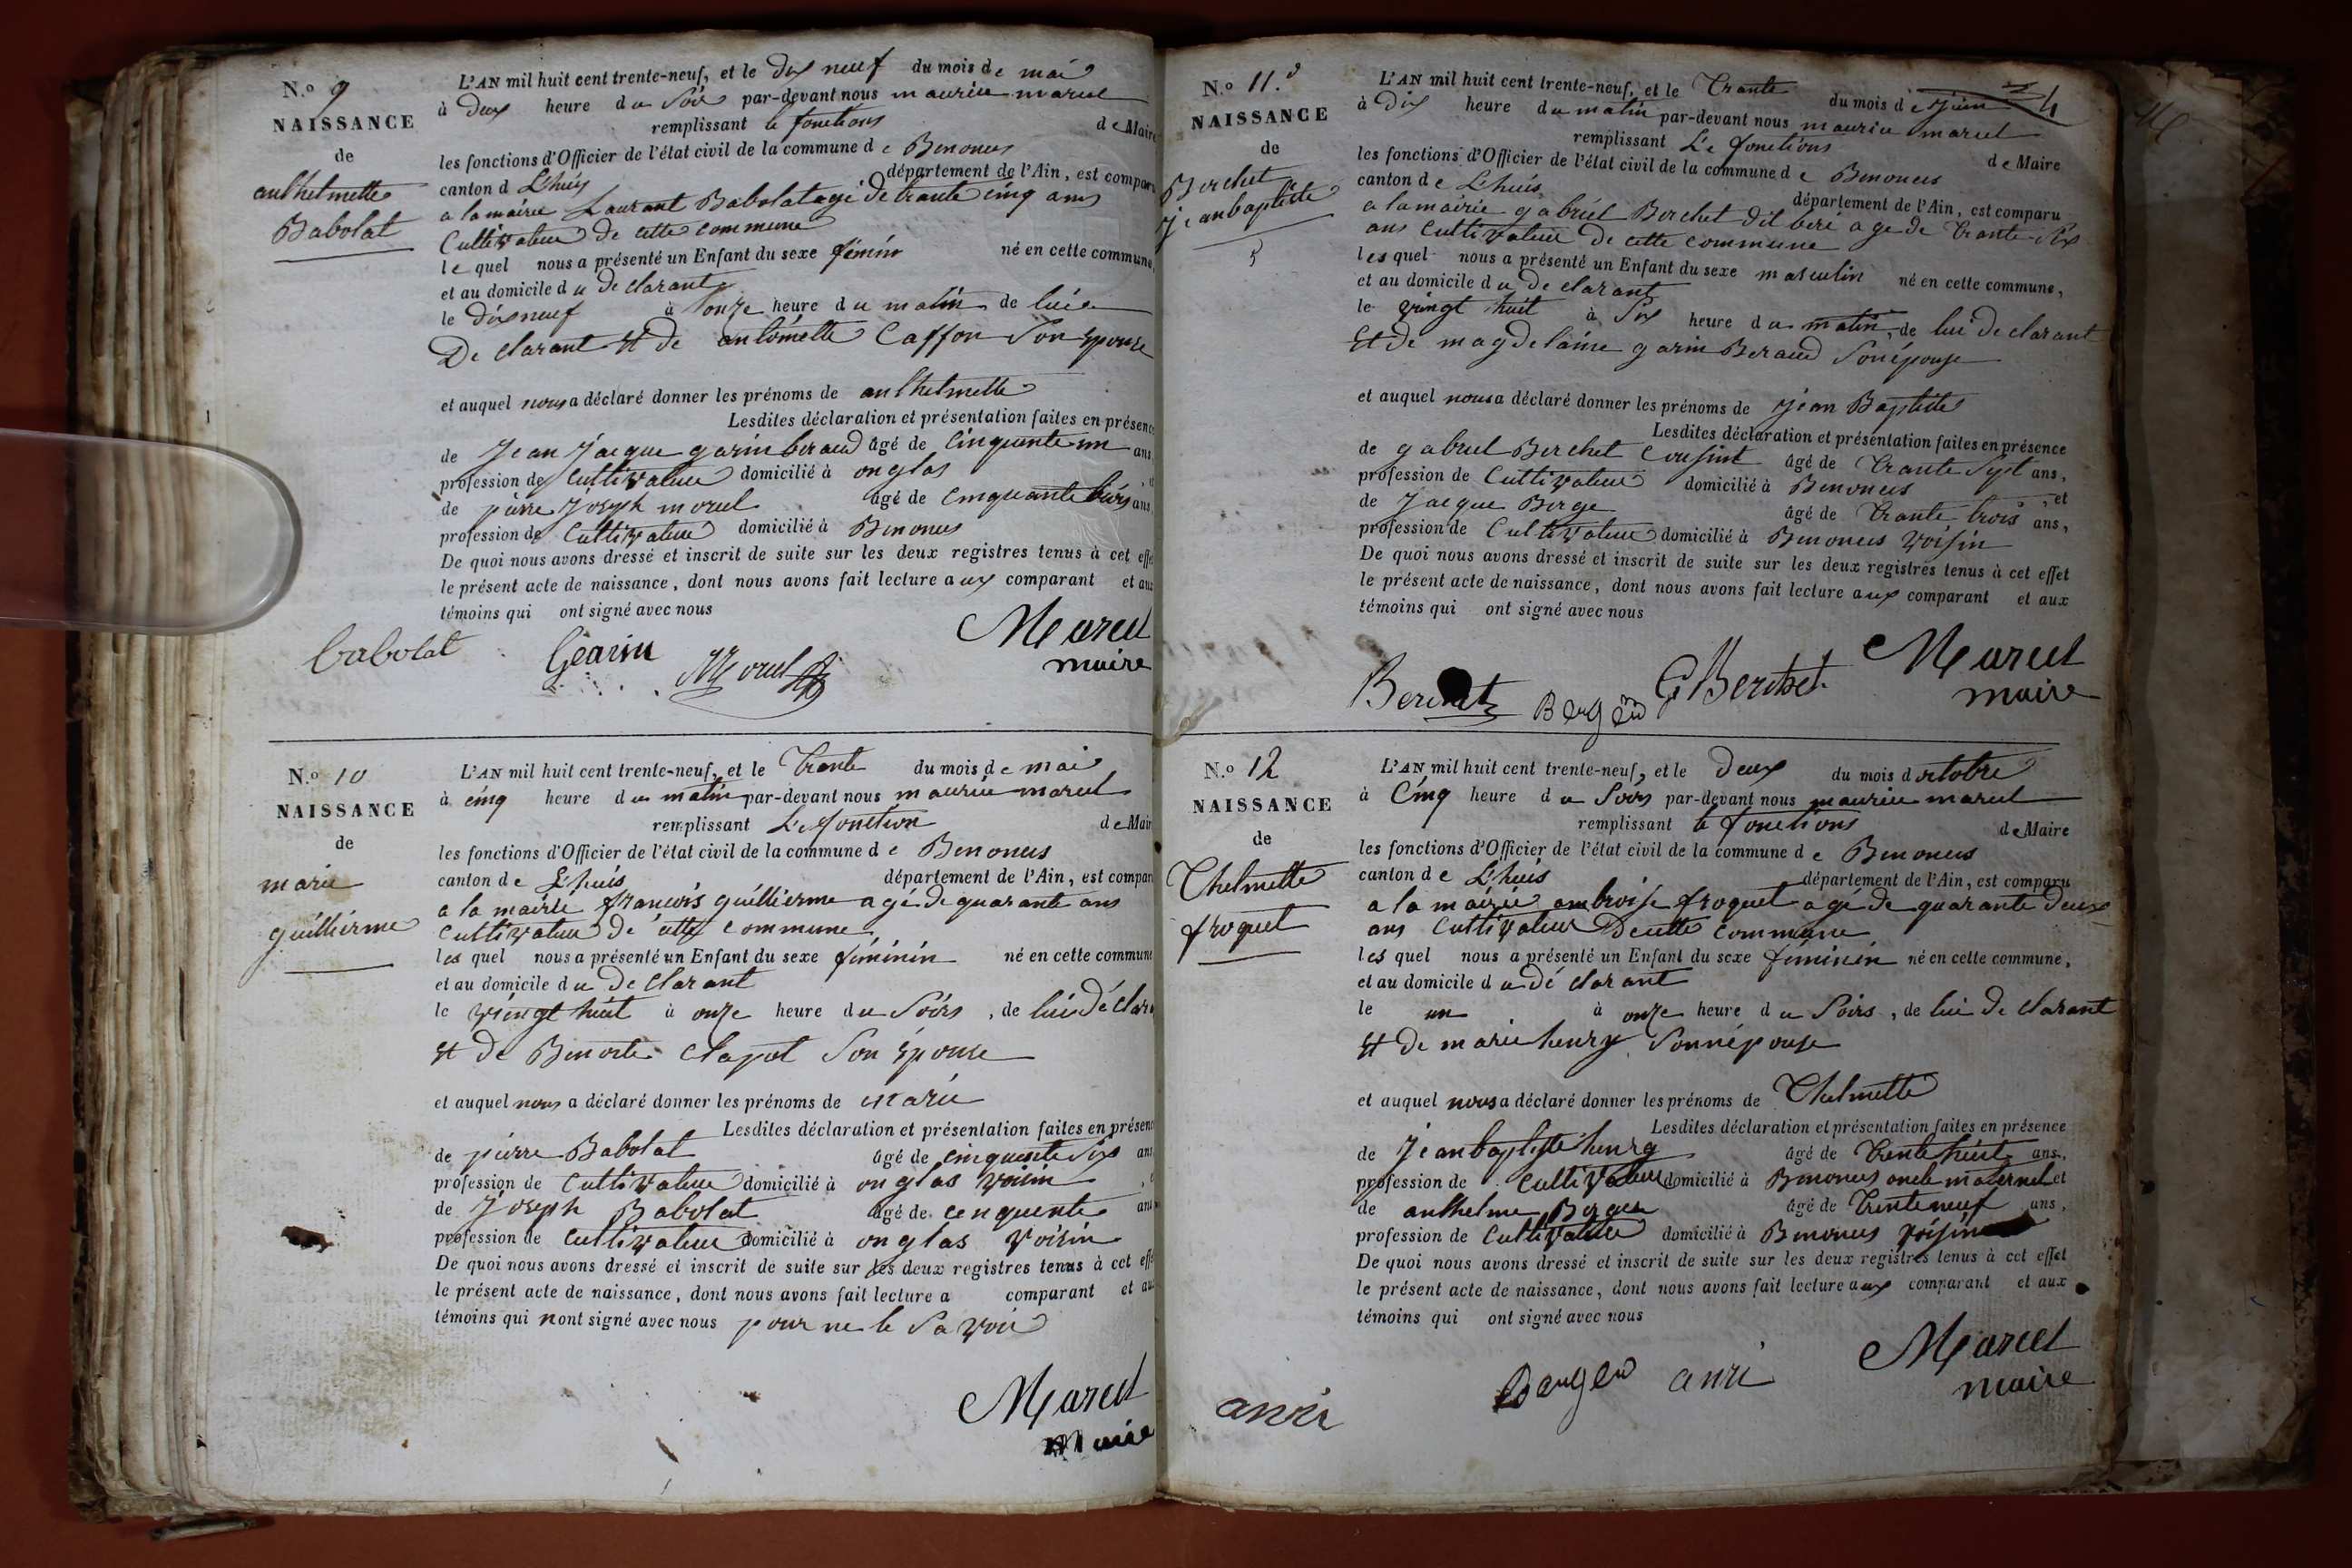 N.o 9
NAISSANCE
de
anthelmette
Babolat
L'AN mil huit cent trente-neuf, et le dix neuf du mois de mai
à deux heure du Soir par-devant nous mauriee marcel
remplissant le fonctions de Maire
les fonctions d'Officier de l'état civil de la commune de Benonces
canton d L'huis département de l'Ain, est comparu
a la mairie Laurant Babolat agé de trante cinq ans
Cultivateur de cette commune
le quel nous a présenté un Enfant du sexe féminin né en cette commune,
et au domicile du de clarant
le dix neuf à onze heure du matin de lui
De clarant Et de antomette Caffon Son Epouse
et auquel nous a déclaré donner les prénoms de anthelmette
Lesdites déclaration et présentation faites en présence
de Jean Jacque garin beraud âgé de Cinquante un ans
profession de Cultivateur domicilié à onglas
de pierre Joseph morel âgé de Cinquante trois ans
profession de Cultivateur domicilié à Benonces
De quoi nous avons dressé et inscrit de suite sur les deux registres tenus à cet effet
le présent acte de naissance, dont nous avons fait lecture aux comparant et aux
témoins qui ont signé avec nous
babolat Gearin Morel Marcel
maire
N.o 10
NAISSANCE
de
marie
guillierme
L'AN mil huit cent trente-neuf, et le Trante du mois de mai
à cinq heure du matin par-devant nous mauriee marcel
remplissant Le fonction de Maire
les fonctions d'Officier de l'état civil de la commune de Benonces
canton de L'huis département de l'Ain, est comparu
a la mairie francois guillierme agé de quarante ans
Cultivateur de cette commune
les quel nous a présenté un Enfant du sexe féminin né en cette commune
et au domicile du De Clarant
le vingt huit à onze heure du Soirs, de lui Déclara
Et de Benoite Clapot Son Epouse
et auquel nous a déclaré donner les prénoms de marie
Lesdites déclaration et présentation faites en présence
de pierre Babolat âgé de cinquante Six ans
profession de Cultivateur domicilié à onglas voisin
de Joseph Babolat âgé de cenquente ans
profession de Cultivateur domicilié à onglas voisin
De quoi nous avons dressé et inscrit de suite sur les deux registres tenus à cet effet
le présent acte de naissance, dont nous avons fait lecture a comparant et aux
témoins qui nont signé avec nous pour ne le Savoir
Marcel
Maire
N.o 11.
NAISSANCE
de
Berchet
Jeanbaptiste
L'AN mil huit cent trente-neuf, et le Trante du mois de Juin
à Dix heure du matin par-devant nous mauriee marcel
remplissant Le fonctions de Maire
les fonctions d'Officier de l'état civil de la commune de Benonces
canton de L'huis département de l'Ain, est comparu
a la mairie gabriel Berchet dit beri agé de Trante Six
ans Cultivateur de cette commune
les quel nous a présenté un Enfant du sexe masculin né en cette commune,
et au domicile du De clarant
le vingt huit à Six heure du matin, de lui De clarant
Et de magdelaine garin Beraud Son épouse
et auquel nous a déclaré donner les prénoms de Jean Baptiste
Lesdites déclaration et présentation faites en présence
de gabriel Berchet Cousint âgé de Trante Sept ans,
profession de Cultivateur domicilié à Benonces , et
de Jacque Berge âgé de Trante trois ans,
profession de Cultivateur domicilié à Benonces voisin
De quoi nous avons dressé et inscrit de suite sur les deux registres tenus à cet effet
le présent acte de naissance, dont nous avons fait lecture aux comparant et aux
témoins qui ont signé avec nous
G Berchet Marcel
maire
N.o 12
NAISSANCE
de
Thelmette
froquet
L'AN mil huit cent trente-neuf, et le deux du mois doctobre
à Cinq heure du Soirs par-devant nous mauriee marcel
remplissant le fonctions de Maire
les fonctions d'Officier de l'état civil de la commune de Benonces
canton de L'huis département de l'Ain, est comparu
a la mairie ambroise froquet agé de quarante deux
ans Cultivateur De cette Commune
les quel nous a présenté un Enfant du sexe féminin né en cette commune,
et au domicile du dé clarant
le un à onze heure du Soirs, de lui De clarant
Et De marie henry Sonnépouse
et auquel nous a déclaré donner les prénoms de Thelmette
Lesdites déclaration et présentation faites en présence
de Jean baptiste henry âgé de Trente huit ans,
profession de Cultivateur domicilié à Benonces oncle maternel et
de anthelme Berger âgé de Trente neuf ans,
profession de Cultivateur domicilié à Benonces voisin
De quoi nous avons dressé et inscrit de suite sur les deux registres tenus à cet effet
le présent acte de naissance, dont nous avons fait lecture aux comparant et aux
témoins qui ont signé avec nous
anri anri Marcel
maire